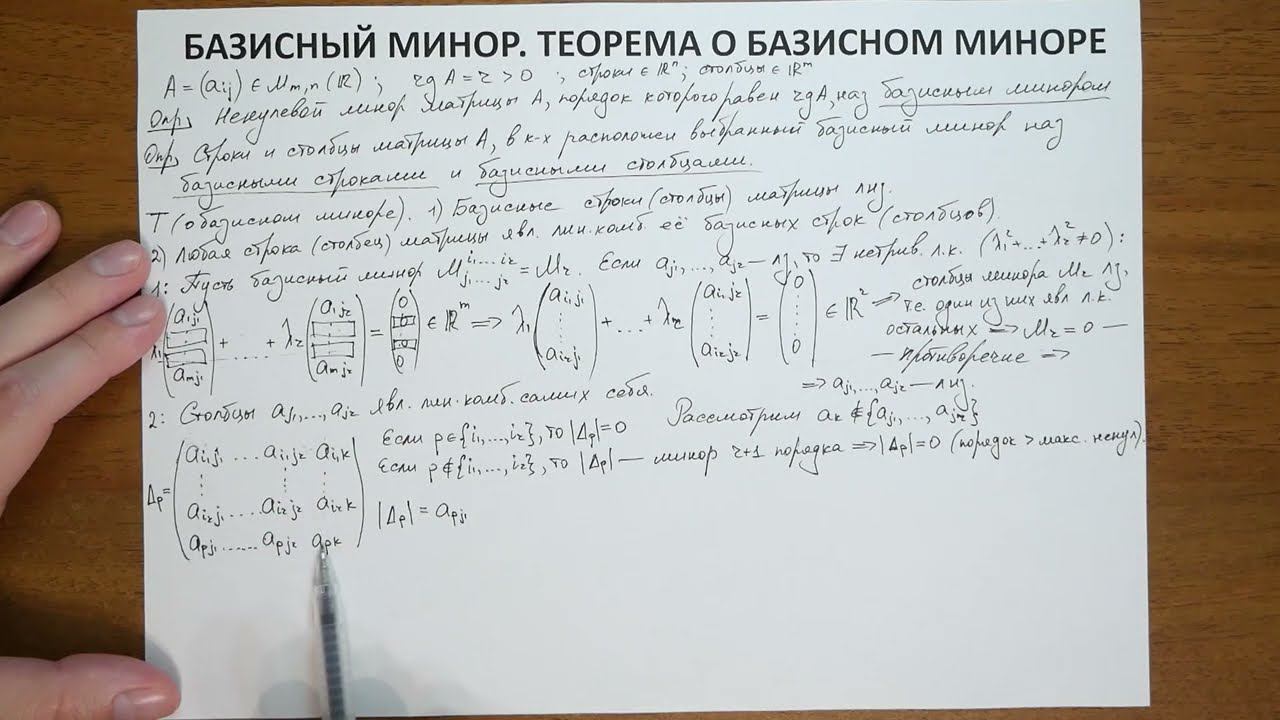 БАЗИСНЫЙ МИНОР. ТЕОРЕМА О БАЗИСНОМ МИНОРЕ
A = (aᵢⱼ) ∈ Mₘ,ₙ(ℝ) ; rg A = r > 0 ; строки ∈ ℝⁿ; столбцы ∈ ℝᵐ
Опр, Ненулевой минор матрицы A, порядок которого равен rgA, наз базисным минором
Опр, Строки и столбцы матрицы A, в к-х расположен выбранный базисный минор наз
базисными строками и базисными столбцами.
Т (о базисном миноре). 1) Базисные строки (столбцы) матрицы лнз.
2) Любая строка (столбец) матрицы явл. лин. комб. её базисных строк (столбцов).
1: Пусть базисный минор M^{i₁...iᵣ}_{j₁...jᵣ} = Mᵣ. Если a_{j₁},..., a_{jᵣ} — лз, то ∃ нетрив. л.к. (λ₁²+...+λᵣ² ≠ 0) :
λ₁ (a₁j₁ aₘj₁) + ... + λᵣ (a₁jᵣ aₘjᵣ) = (0 0 0 0) ∈ ℝᵐ ⇒ λ₁ (a_{i₁j₁} ⋮ a_{iᵣj₁}) + ... + λᵣ (a_{i₁jᵣ} ⋮ a_{iᵣjᵣ}) = (0 ⋮ 0) ∈ ℝʳ ⇒ столбцы минора Mᵣ лз,
т.е. один из них явл л.к.
остальных ⇒ Mᵣ = 0 —
— противоречие ⇒
⇒ a_{j₁},..., a_{jᵣ} — лнз.
2: Столбцы a_{j₁},..., a_{jᵣ} явл. лин. комб. самих себя. Рассмотрим aₖ ∉ {a_{j₁},..., a_{jᵣ}}
Если p ∈ {i₁,..., iᵣ}, то |Δₚ| = 0
Если p ∉ {i₁,..., iᵣ}, то |Δₚ| — минор r+1 порядка ⇒ |Δₚ| = 0 (порядок > макс. ненул).
Δₚ = (a_{i₁j₁} ... a_{i₁jᵣ} a_{i₁k}
⋮ ⋮ ⋮
a_{iᵣj₁} .... a_{iᵣjᵣ} a_{iᵣk}
a_{pj₁} ...... a_{pjᵣ} a_{pk})
|Δₚ| = a_{pj₁}